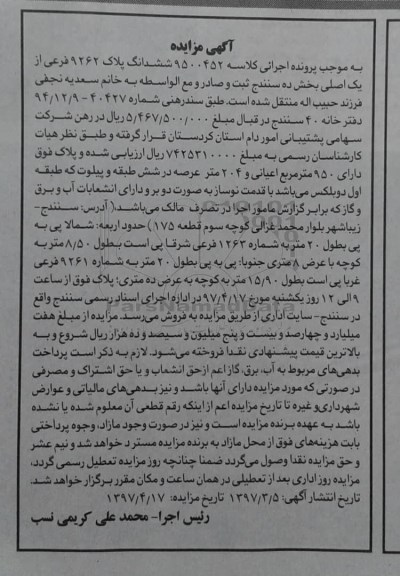 آگهی مزایده
به موجب پرونده اجرائی کلاسه ۹۵۰۰۴۵۲ ششدانگ پلاک ۹۲۶۲ فرعی از
یک اصلی بخش ده سنندج ثبت و صادر و مع الواسطه به خانم سعدیه نجفی
فرزند حبیب اله منتقل شده است. طبق سندرهنی شماره ۴۰۴۲۷ - ۹۴/۱۲/۹
دفترخانه ۴۰ سنندج در قبال مبلغ ۵/۴۶۷/۵۰۰/۰۰۰ ریال در رهن شرکت
سهامی پشتیبانی امور دام استان کردستان قرار گرفته و طبق نظر هیات
کارشناسان رسمی به مبلغ ۷۴۲۵۳۱۰۰۰۰ ریال ارزیابی شده و پلاک فوق
دارای ۹۵۰ مترمربع اعیانی و ۲۰۴ متر عرصه در شش طبقه و پیلوت که طبقه
اول دوبلکس می‌باشد با قدمت نوساز به صورت دو بر و دارای انشعابات آب و برق
و گاز که برابر گزارش مامور اجرا در تصرف مالک می‌باشد،( آدرس: سنندج-
زیباشهر بلوار محمد غزالی کوچه سوم قطعه ۱۷۵) حدود اربعه: شمالا پی به
پی بطول ۲۰ متر به شماره ۱۲۶۳ فرعی شرقا پی است بطول ۸/۵۰ متر به
کوچه با عرض ۸ متری جنوبا: پی به پی بطول ۲۰ متر به شماره ۹۲۶۱ فرعی
غربا پی است بطول ۱۵/۹۰ متر به کوچه به عرض ده متری؛ پلاک فوق از ساعت
۹ الی ۱۲ روز یکشنبه مورخ ۹۷/۴/۱۷ در اداره اجرای اسناد رسمی سنندج واقع
در سنندج- سایت اداری از طریق مزایده به فروش می‌رسد. مزایده از مبلغ هفت
میلیارد و چهارصد و بیست و پنج میلیون و سیصد و ده هزار ریال شروع و به
بالاترین قیمت پیشنهادی نقدا فروخته می‌شود. لازم به ذکر است پرداخت
بدهی‌های مربوط به آب، برق، گاز اعم از حق انشعاب و یا حق اشتراک و مصرفی
در صورتی که مورد مزایده دارای آنها باشد و نیز بدهی‌های مالیاتی و عوارض
شهرداری و غیره تا تاریخ مزایده اعم از اینکه رقم قطعی آن معلوم شده یا نشده
باشد به عهده برنده مزایده است و نیز در صورت وجود مازاد، وجوه پرداختی
بابت هزینه‌های فوق از محل مازاد به برنده مزایده مسترد خواهد شد و نیم عشر
و حق مزایده نقدا وصول می‌گردد ضمنا چنانچه روز مزایده تعطیل رسمی گردد،
مزایده روز اداری بعد از تعطیلی در همان ساعت و مکان مقرر برگزار خواهد شد.
تاریخ انتشار آگهی: ۱۳۹۷/۳/۵ تاریخ مزایده: ۱۳۹۷/۴/۱۷
رئیس اجرا- محمد علی کریمی نسب